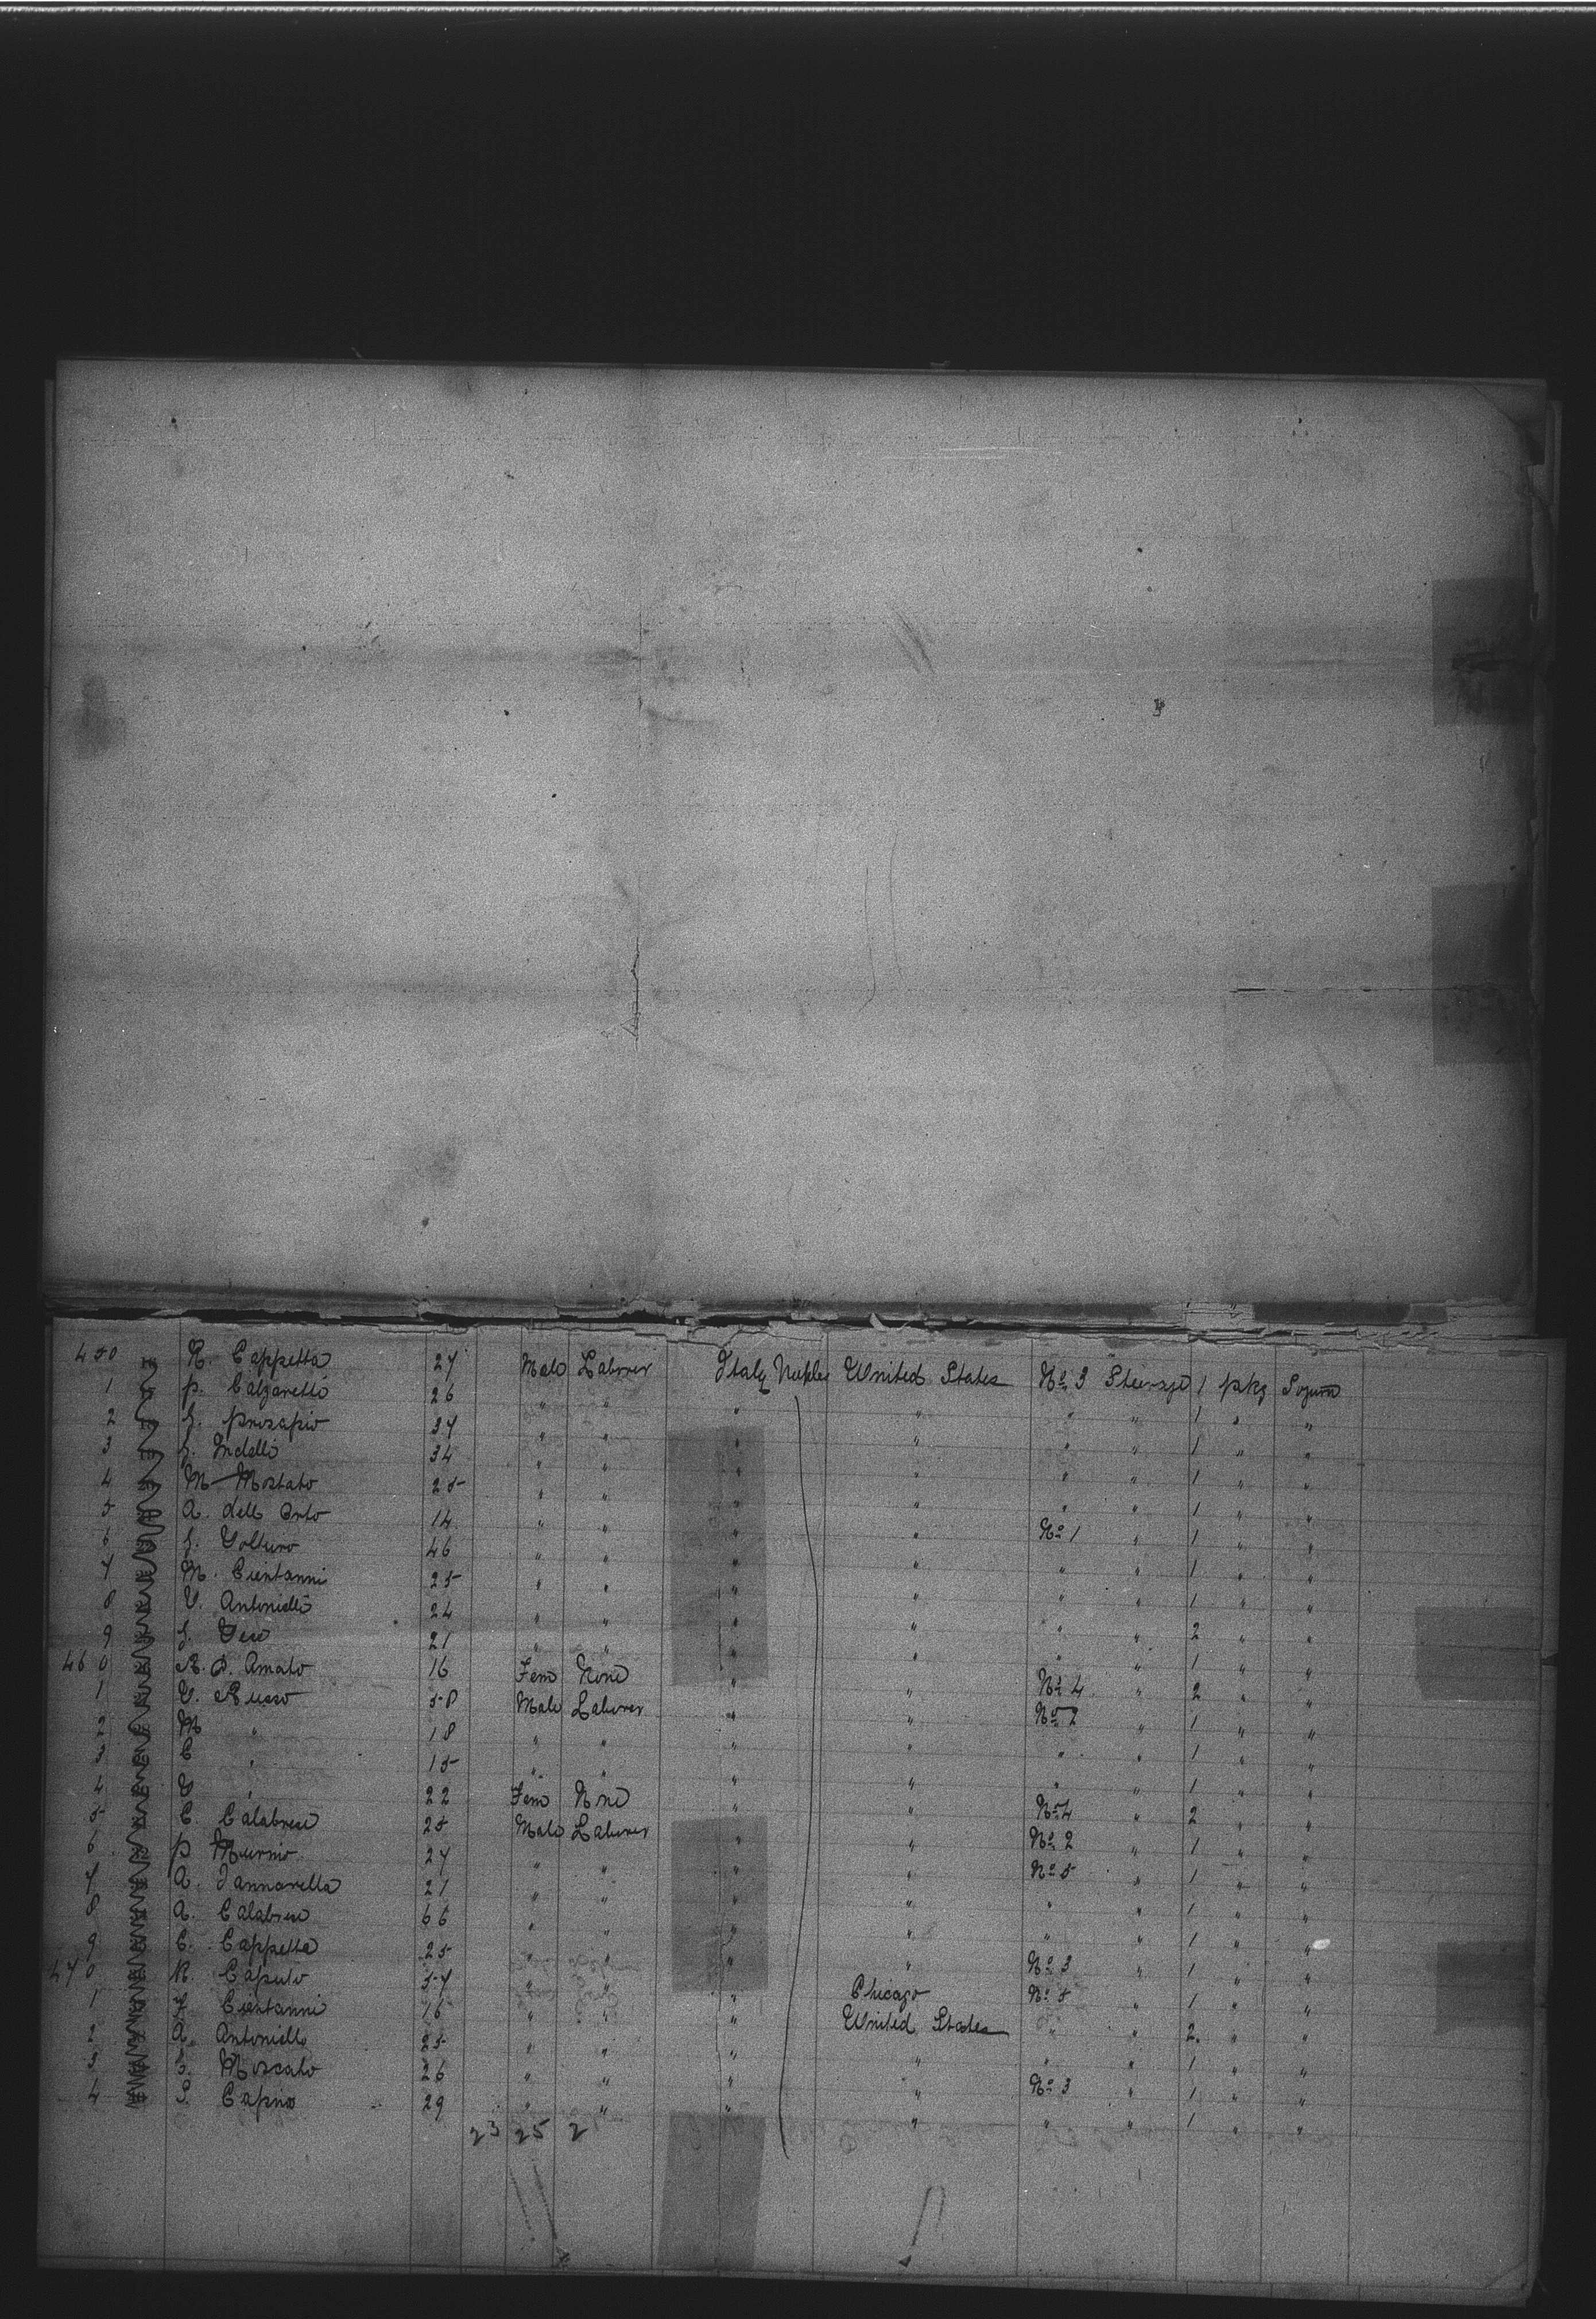 450 R. Cappetta 27 Male Laborer Italy Naples United States No 3 Steerage 1 pkg Sojurn
1 P. Calzaretto 26 " " " " " " 1 " "
2 G. Prozapio 37 " " " " " " 1 " "
3 G. Indelli 34 " " " " " " 1 " "
4 M. Mostato 25 " " " " " " 1 " "
5 A. dell Orto 14 " " " " No 1 " 1 " "
6 G. Volturo 46 " " " " " " 1 " "
7 M. Cientanni 25 " " " " " " 1 " "
8 V. Antoniello 24 " " " " " " 2 " "
9 G. 21 " " " " " " 1 " "
460 R. D. Amato 16 Fem None " " No 4 " 2 " "
1 V. Russo 58 Male Laborer " " No 2 " 1 " "
2 M " 18 " " " " " " 1 " "
3 C " 15 " " " " " " 1 " "
4 V " 22 Fem None " " No 4 " 2 " "
5 C. Calabrese 25 Male Laborer " " No 2 " 1 " "
6 P. Murno 27 " " " " No 5 " 1 " "
7 A. Iannarella 21 " " " " " " 1 " "
8 A. Calabrese 66 " " " " " " 1 " "
9 C. Cappetta 25 " " " " No 3 " 1 " "
470 R. Caputo 57 " " " Chicago No 5 " 1 " "
1 F. Cientanni 16 " " " United States " " 2 " "
2 A. Antoniello 25 " " " " " " 1 " "
3 Moscato 26 " " " " No 3 " 1 " "
4 S. Capino 29 " " " " " " 1 " "
23 25 2